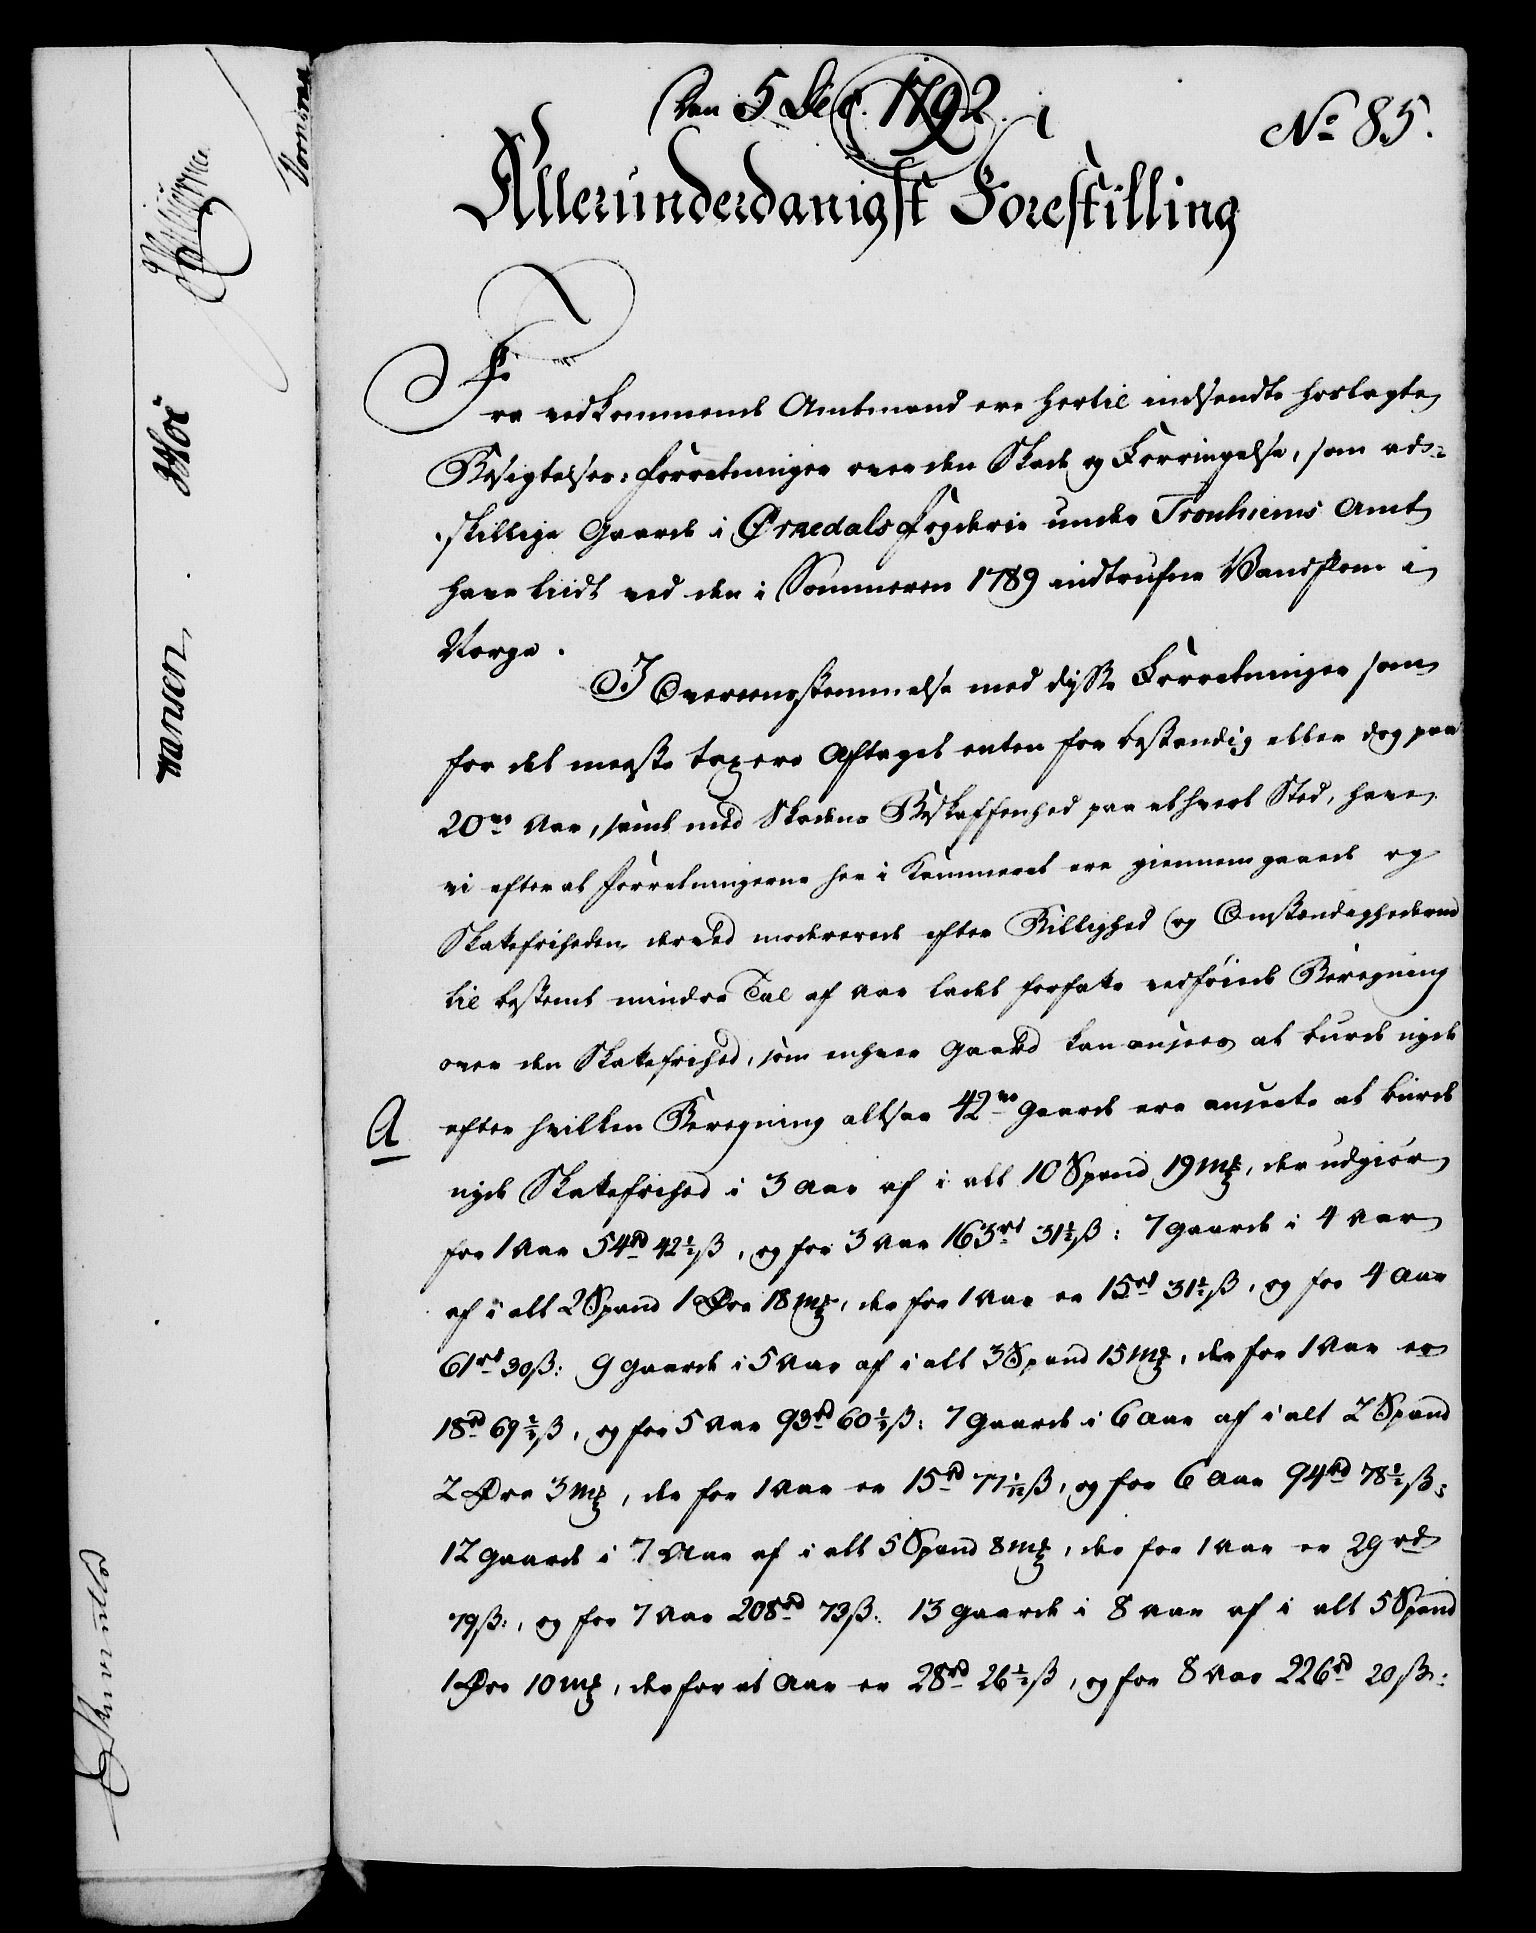 Den 5 Dec. 1792.
No 85.
Allerunderdanigst Forestilling
Fra vedkommende Amtmand ere hertil indsendte hoslagte
Besigtelses-forretninger over den Skade og Forringelse, som ad-
skillige Gaarde i Ørkedals fogderie under Tronhiems Amt
have liidt ved den i Sommeren 1789 indtrufne Vandflom i
Norge.
I Overeensstemmelse med disse Forretninger som
for det meeste taxere Aftaget enten for bestandig eller dog paa
20ve Aar, samt med Skadens Beskaffenhed paa ethvert Sted, have
vi efter at forretningerne her i Kammeret ere giennemgaaede og
Skatefriheden derved modererede efter Billighed og Omstændighederne
til bestemt mindre Tal af Aar ladet forfatte vedføiede Beregning
over den Skatefrihed, som enhver Gaard kan ansees at burde nyde
A
efter hvilken Beregning altsaa 42ve Gaarde ere ansete at burde
nyde Skatefrihed i 3 Aar af i alt 10 Spand 19 mß, der udgiør
for 1 Aar 54rd 42½ß, og for 3 Aar 163rd 31½ß: 7 gaarde i 4 Aar
af i alt 2 Spand 1 Øre 18 mß, der for 1 Aar er 15rd 31½ß, og for 4 Aar
61rd 30ß: 9 gaarde i 5 Aar af i alt 3 Spand 15 mß, der for 1 Aar er
18rd 69½ß, og for 5 Aar 93rd 60½ß: 7 gaarde i 6 Aar af i alt 2 Spand
2 Øre 3 mß, der for 1 Aar er 15rd 77 1/12ß, og for 6 Aar 94rd 78½ß:
12 gaarde i 7 Aar af i alt 5 Spand 8 mß, der for 1 Aar er 29rd
79ß:, og for 7 Aar 208rd 73ß: 13 gaarde i 8 Aar af i alt 5 Spand
1 Øre 10 mß, der for et Aar er 28rd 26½ß, og for 8 Aar 226rd 20ß:
Hansen